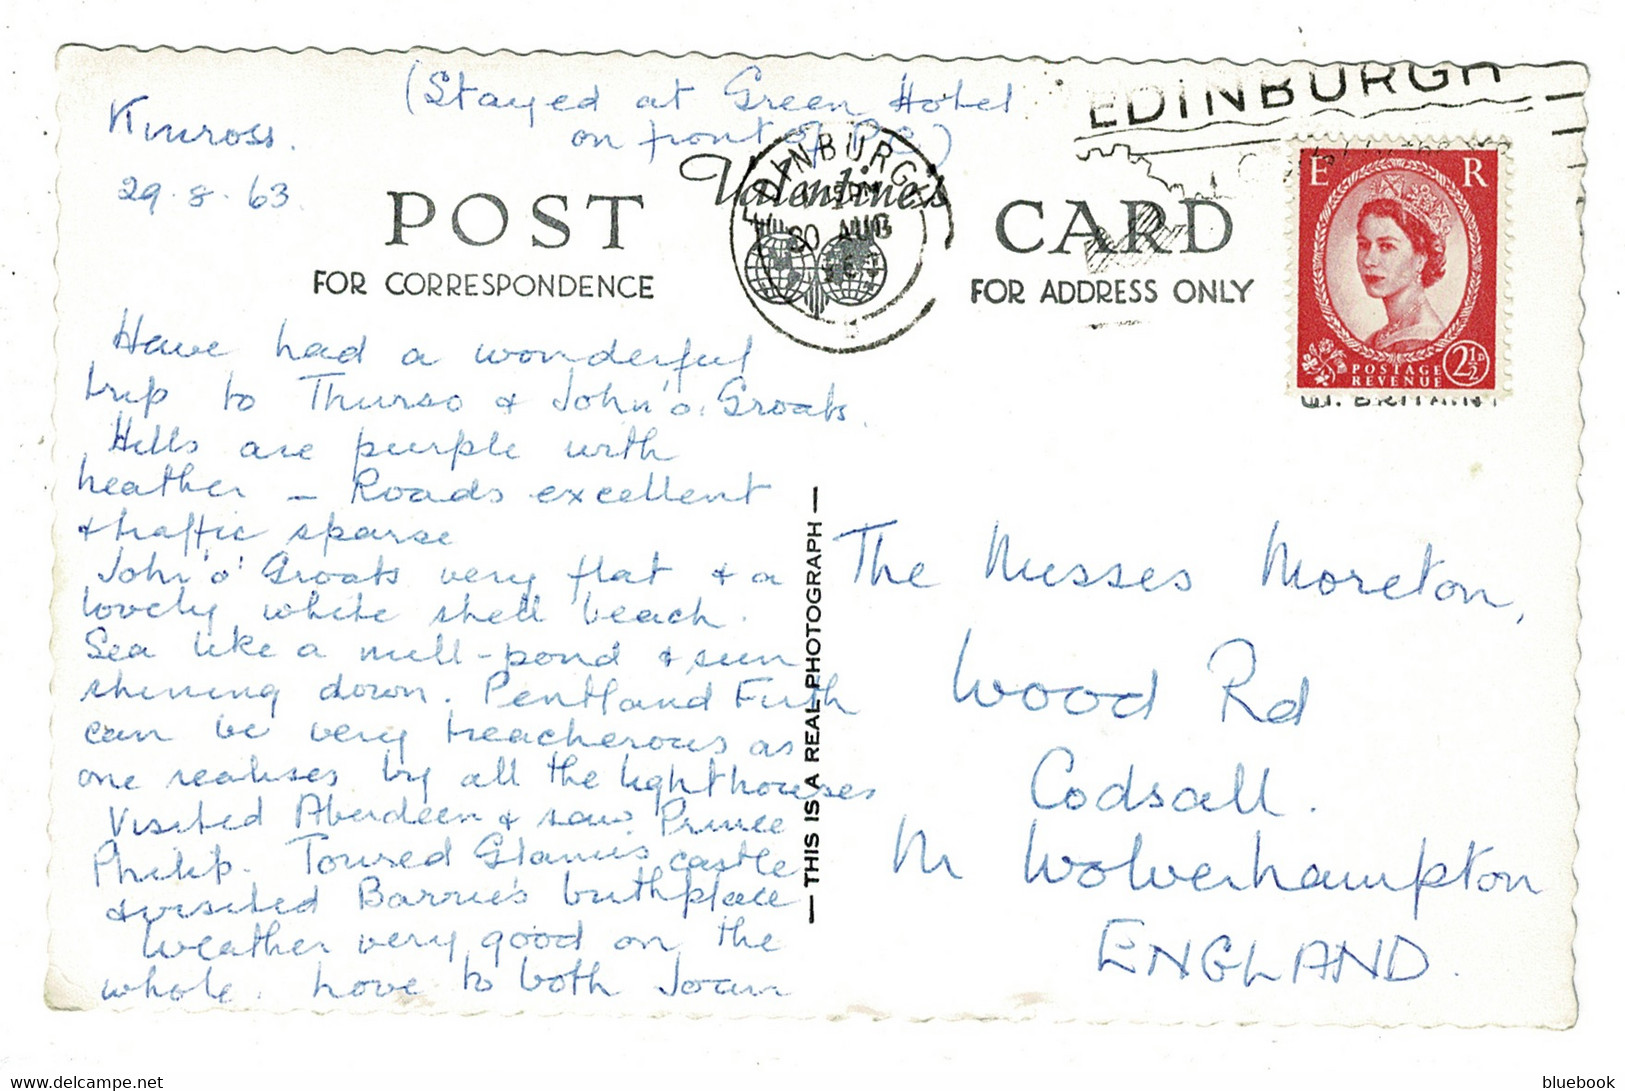 (Stayed at Green Hotel
on front of P.C.)
Kinross.
29.8.63
EDINBURGH
EDINBURGH
30 AUG
Valentine's
POST CARD
FOR CORRESPONDENCE
FOR ADDRESS ONLY
E R
POSTAGE
REVENUE
2½D
GT. BRITAIN
Have had a wonderful
trip to Thurso & John'o'Groats.
Hills are purple with
heather – Roads excellent
& traffic sparse
John'o'Groats very flat & a
lovely white shell beach.
Sea like a mill-pond & sun
shining down. Pentland Firth
can be very treacherous as
one realises by all the lighthouses
Visited Aberdeen & saw Prince
Philip. Toured Glamis castle
& visited Barrie's birthplace
Weather very good on the
whole. Love to both Joan
— THIS IS A REAL PHOTOGRAPH —
The Misses Moreton,
Wood Rd
Codsall.
Nr Wolverhampton
ENGLAND.
www.delcampe.net
bluebook